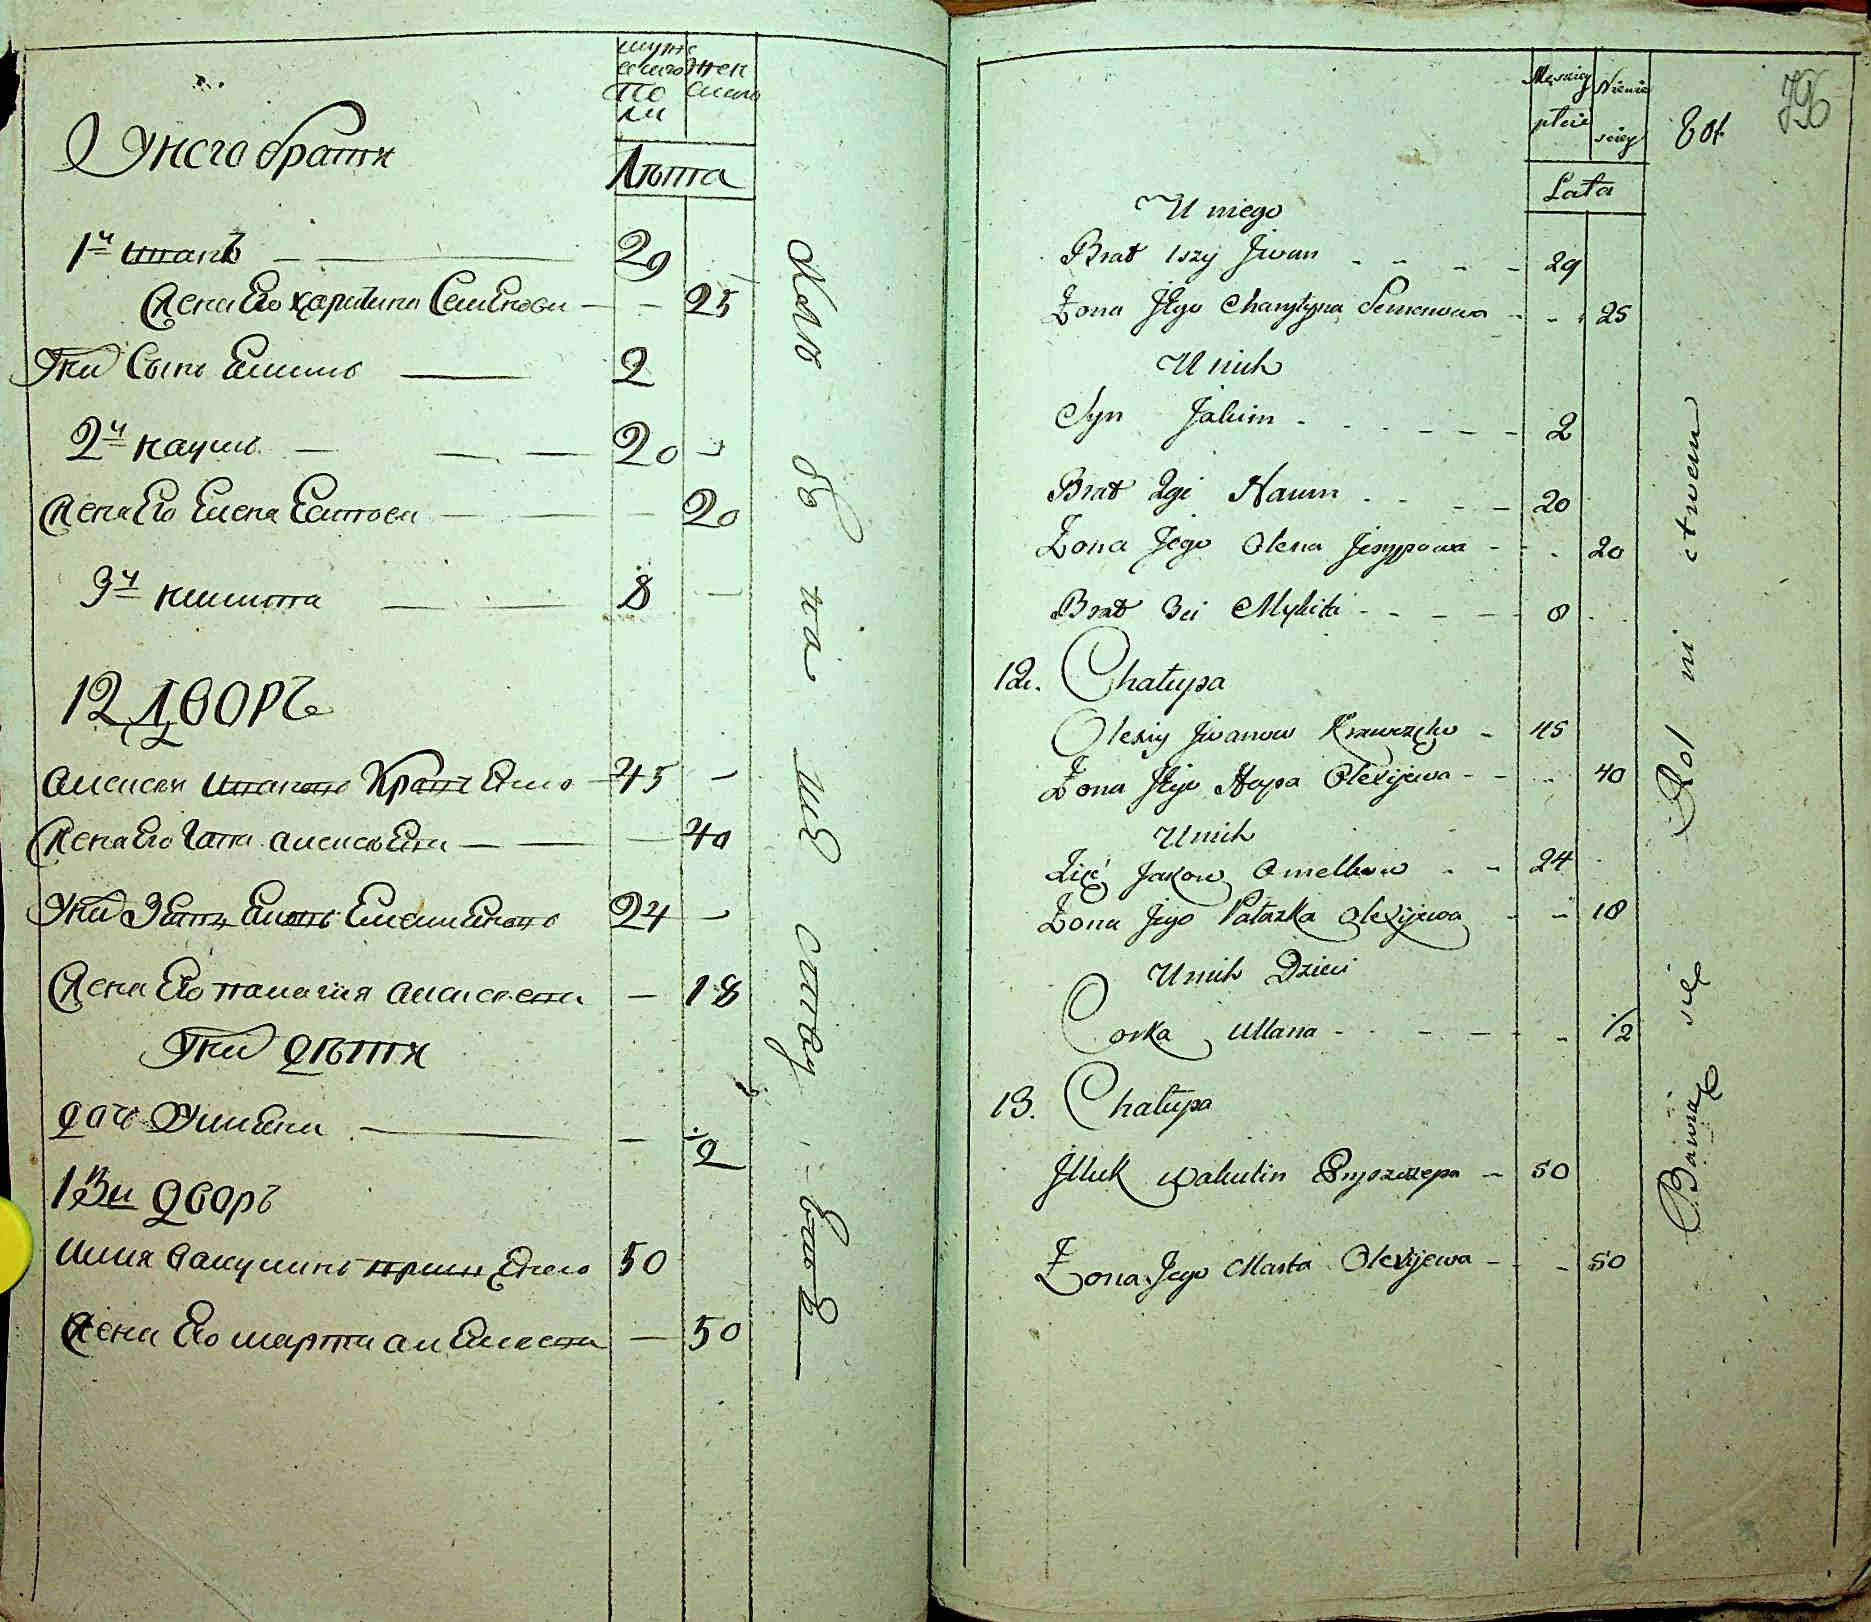 мужеска го по ли
женскаго
Лѣта
У него братя
1й иванъ 29
Жена Его харитина Семенова 25
У ни Сынъ Екимъ 2
2й наумъ 20
Жена Его Елена Еситова 20
3й никита 8
12 ДВОРЪ
алексей ивановъ Кравченко 45
Жена Его Гапа алексѣева 40
У ни Зять Яковъ Емелияновъ 24
Жена Его палагия алексеева 18
У ни дѣти
дочь Улияна 1/2
13й дворъ
илия вакулинъ
50
Жена Его марта алексеева 50
Męskiey płci
Niewieściey
Lata
796
U niego
Brat 1szy Jwan 29
Żona Jego Charytyna Semenowa 25
U nich
Syn Jakim 2
Brat 2gi Naum 20
Żona Jego Olena Jesypowa 20
Brat 3ci Mykita 8
12. Chałupa
Olexiy Jwanow Krawczęko 45
Żona Jego Hapa Olexijewa 40
U nich
Zięć Jakow Omelkow 24
Żona Jego Pałazka Olexijewa 18
U nich Dzieci
Corka Ullana 1/2
13. Chałupa
Jlluk Wakulin Pryszczepa 50
Żona Jego Marta Olexijewa 50
Bawią się Rol ni ctwem